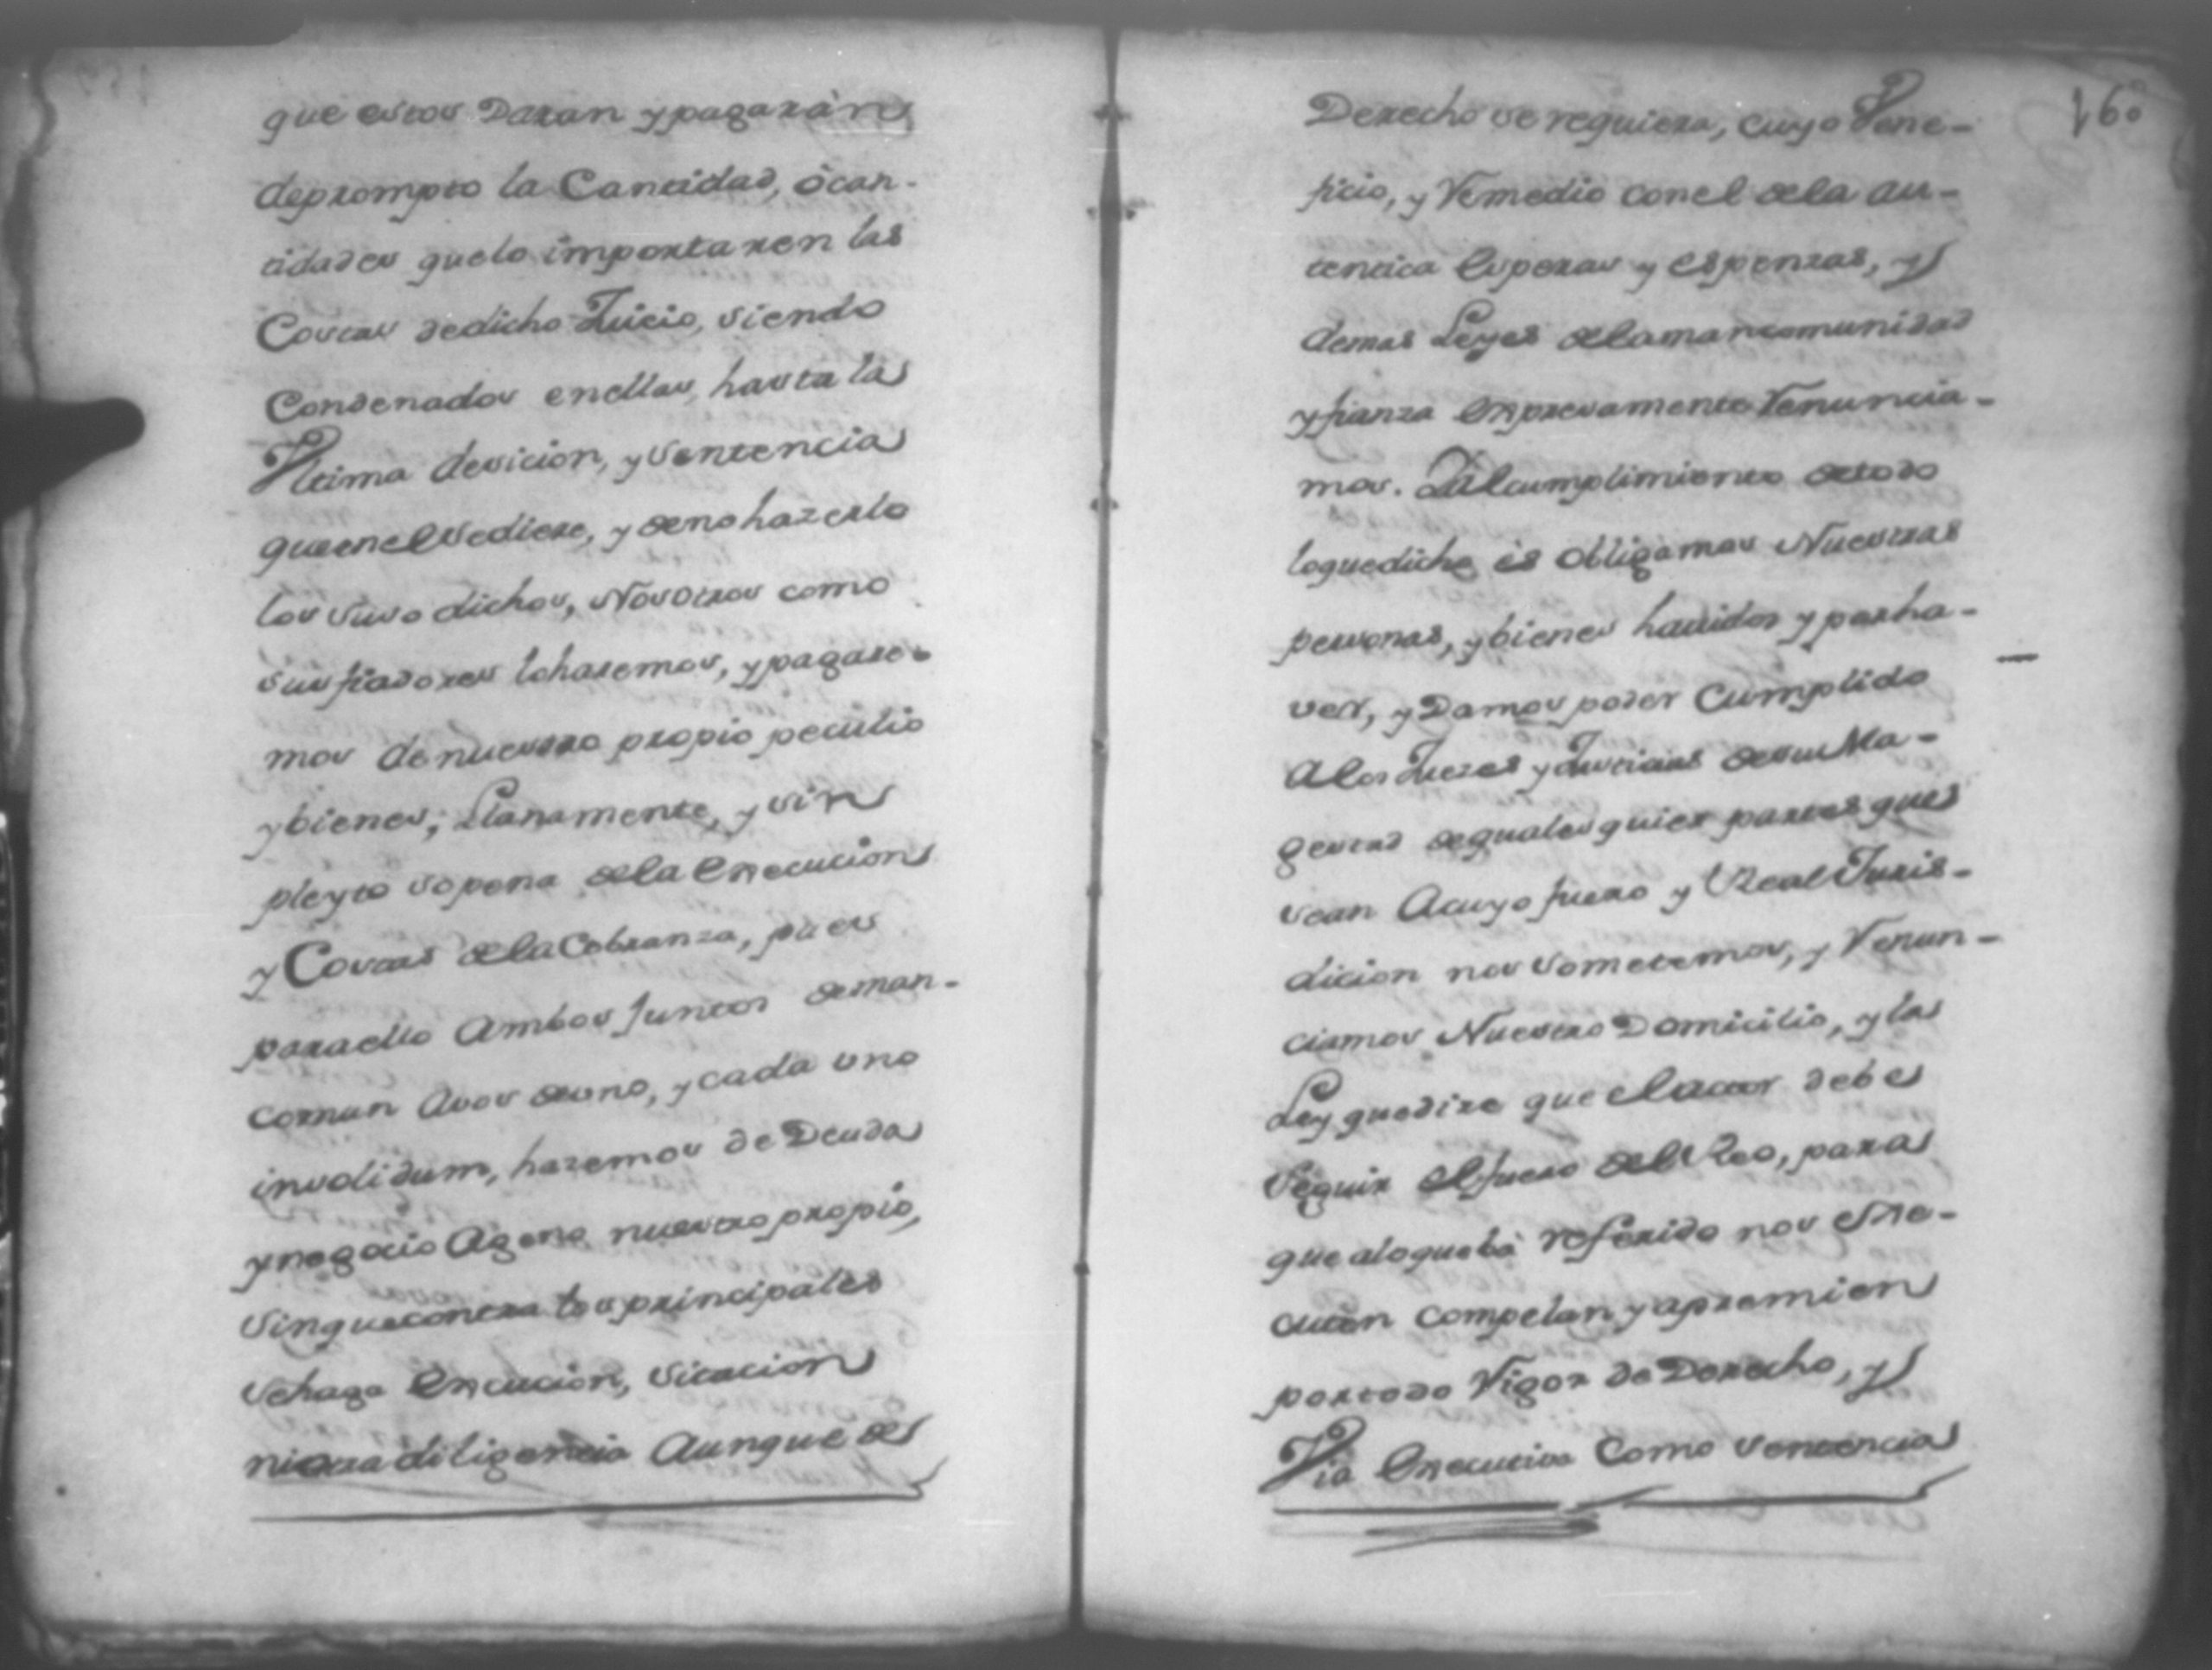 que estos Daran y pagarán
deprompto la Cantidad, ò can-
tidades quelo importaren las
Costas dedicho Juicio, siendo
Condenados enellas, hasta la
Vltima desicion, y sentencia
queenel sediere, y deno hazerlo
los suso dichos, Nosotros como
sus fiadores loharemos, y pagare-
mos de nuestro propio peculio
y bienes, Llanamente, y sin
pleyto sopena dela Execucion
y Costas dela Cobranza, pues
paraello Ambos Juntos deman-
comun Avos deuno, y cada uno
insolidum, hazemos de Deuda
y negocio Ageno nuestro propio,
sinquecontra los principales
sehaga Excucion, sitacion
niotra diligencia Aunque de
160
Derecho se requiera, cuyo Vene-
ficio, y Remedio conel dela au-
tentica Esperas y espensas, y
demas Leyes delamancomunidad
y fianza Expresamente Renuncia-
mos. Y al cumplimiento detodo
loquedicho es obligamos Nuestras
personas, y bienes havidos y porha-
ver, y Damos poder Cumplido
A los Juezes y Justicias desu Ma-
gestad dequalesquier partes que
sean Acuyo fuero y Real Juris-
dicion nos sometemos, y Renun-
ciamos Nuestro Domicilio, y la
Ley quedize que el actor debe
seguir el fuero del Reo, para
que aloqueba referido nos Exe-
cuten compelan y apremien
portodo Rigor de Derecho, y
Via Executiva Como sentencia